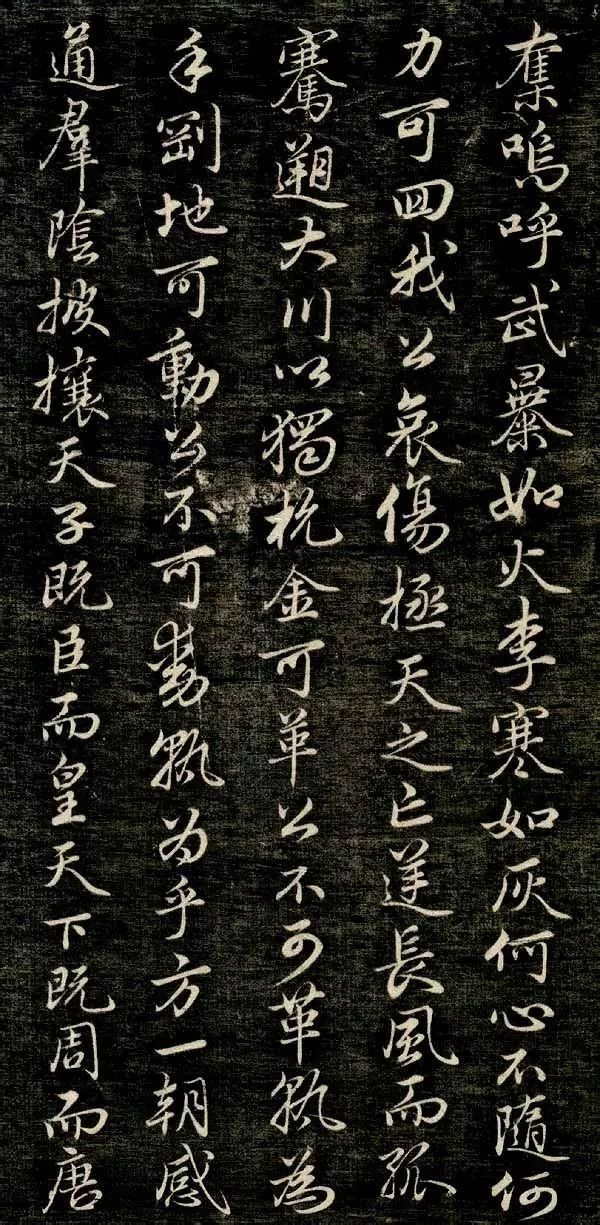 奪嗚呼武暴如火李寒如灰何心不隨何
力可回我公哀傷極天之亡逆長風而孤
騫遡大川以獨杭金可革公不可革孰為
乎剛地可動公不可動孰為乎方一朝感
通羣陰披攘天子既臣而皇天下既周而唐